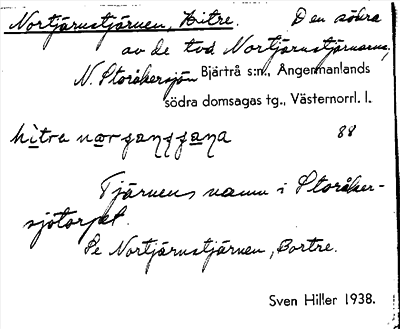 Nortjärnstjärnen, Hitre. Den södra
av de två Nortjärnstjärnarna,
N. Storåkersjön Bjärtrå s:n, Ångermanlands
södra domsagas tg., Västernorrl. l.
88
Tjärnens namn i Storåker-
sjötorpet.
Se Nortjärnstjärnen, Bortre.
Sven Hiller 1938.